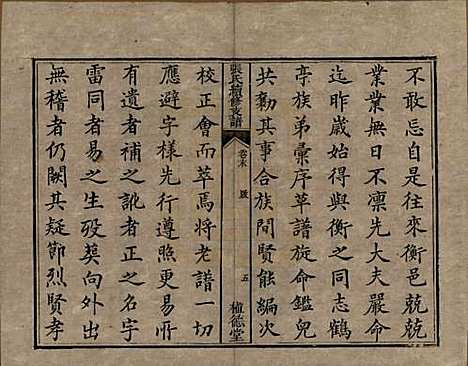 不敢忘自是往來衡邑兢兢
業業無日不凛先大夫嚴命
迄昨歲始得與衡之同志鶴
亭族弟彙序草譜旋命鑑兒
共勷其事合族間賢能編次
張氏續修支譜
卷末 跋 五
植德堂
校正會而萃焉將老譜一切
應避字樣先行遵照更易所
有遺者補之訛者正之名字
雷同者易之生歿葬向外出
無稽者仍闕其疑節烈賢孝